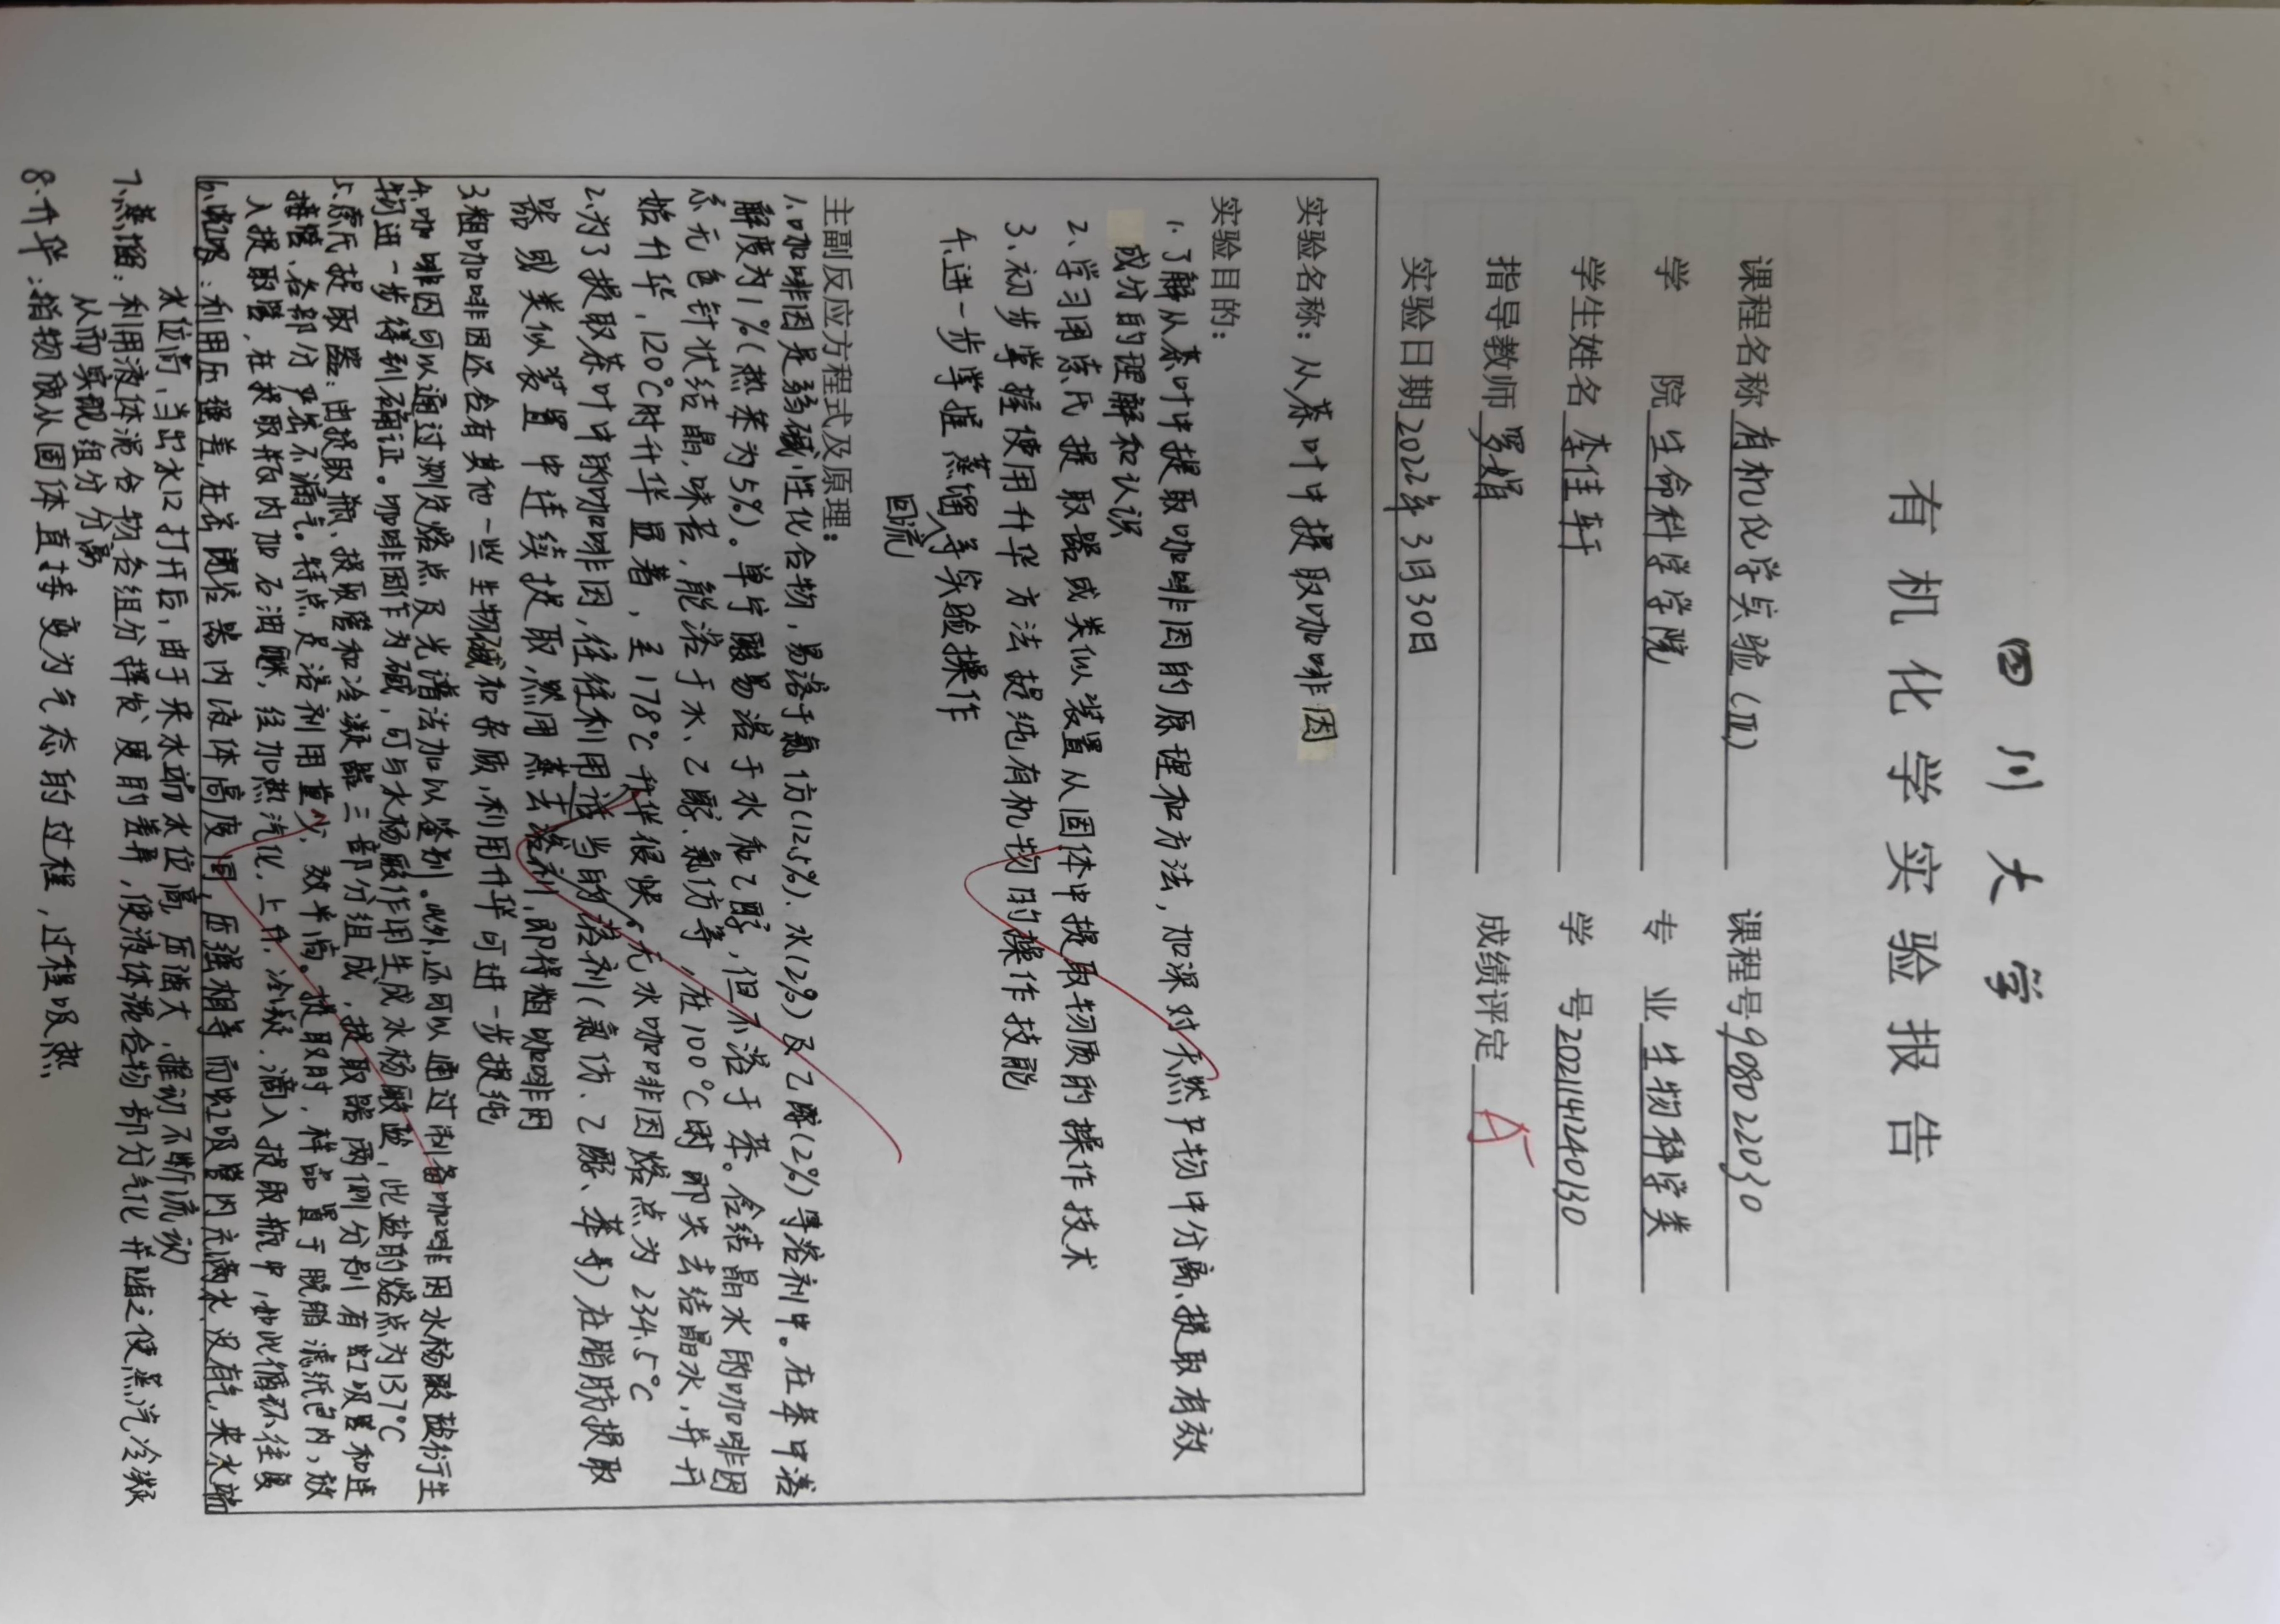 四川大学
有机化学实验报告
课程名称 有机化学实验(Ⅲ) 课程号 908022030
学 院 生命科学学院 专 业 生物科学类
学生姓名 李佳轩 学 号 2021141240130
指导教师 罗娟 成绩评定 A-
实验日期 2022年3月30日
实验名称：从茶叶中提取咖啡因
实验目的：
1、了解从茶叶中提取咖啡因的原理和方法，加深对天然产物中分离、提取有效
成分的理解和认识
2、学习用索氏提取器或类似装置从固体中提取物质的操作技术
3、初步掌握使用升华方法提纯有机物的操作技能
4、进一步掌握蒸馏、回流等实验操作
主副反应方程式及原理：
1、咖啡因是弱碱性化合物，易溶于氯仿(12.5%)、水(2%)及乙醇(2%)等溶剂中。在苯中溶
解度为1%(热苯为5%)。单宁酸易溶于水和乙醇，但不溶于苯。含结晶水的咖啡因
系无色针状结晶，味苦，能溶于水、乙醇、氯仿等，在100℃时即失去结晶水，并开
始升华，120℃时升华显著，至178℃升华很快。无水咖啡因熔点为234.5℃
2、为了提取茶叶中的咖啡因，往往利用适当的溶剂(氯仿、乙醇、苯等)在脂肪提取
器或类似装置中连续提取，然用蒸去溶剂，即得粗咖啡因
3、粗咖啡因还含有其他一些生物碱和杂质，利用升华可进一步提纯
4、咖啡因可以通过测定熔点及光谱法加以鉴别。此外，还可以通过制备咖啡因水杨酸盐衍生
物进一步得到确证。咖啡因作为碱，可与水杨酸作用生成水杨酸盐，此盐的熔点为137℃
5、索氏提取器：由提取瓶、提取管和冷凝器三部分组成，提取器两侧分别有虹吸管和连
接管、各部分严密不漏气。特点是溶剂用量少，效率高。提取时，样品置于脱脂滤纸包内，放
入提取管，在提取瓶内加石油醚，经加热汽化，上升，冷凝，滴入提取瓶中，如此循环往复
6、虹吸：利用压强差，在密闭容器内液体高度同，压强相等而虹吸管内充满水，没有气，来水端
水位高，当出水口打开后，由于来水端水位高，压强大，推动不断流动
7、蒸馏：利用液体混合物各组分挥发度的差异，使液体混合物部分气化并随之使蒸汽冷凝
从而实现组分分离
8、升华：指物质从固体直接变为气态的过程，过程吸热